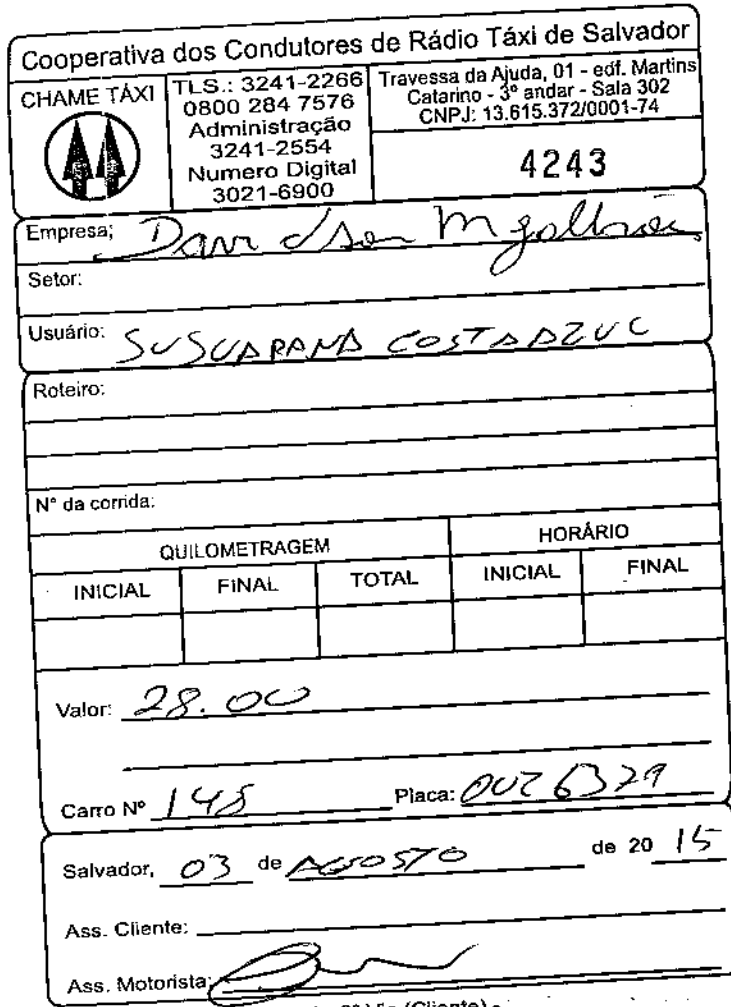 Cooperativa dos Condutores de Rádio Táxi de Salvador
CHAME TÁXI
TLS.: 3241-2266
0800 284 7576
Administração
3241-2554
Numero Digital
3021-6900
Travessa da Ajuda, 01 - edf. Martins
Catarino - 3º andar - Sala 302
CNPJ: 13.615.372/0001-74
4243
Empresa; Davidson Mgalhães
Setor:
Usuário: SUSUARANA COSTA AZUL
Roteiro:
N° da corrida:
QUILOMETRAGEM HORÁRIO
INICIAL FINAL TOTAL INICIAL FINAL
Valor: 28.00
Carro Nº 148 Placa: OUZ 6329
Salvador, 03 de AGOSTO de 20 15
Ass. Cliente:
Ass. Motorista:
(Cliente)